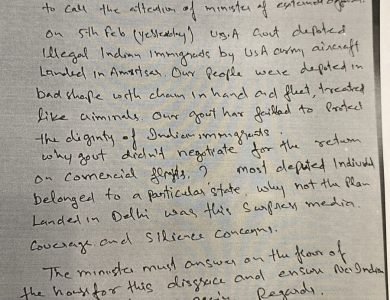 to call the attention of minister of external affairs
on 5th Feb (yesterday) USA Govt depoted
illegal Indian immigrants by USA army aircraft
Landed in Amritsar. Our People were depoted in
bad shape with chain in hand and fleet, treated
like criminals. Our govt har failed to Protect
the dignity of Indian immigrants.
why govt didn't negotiate for the return
on comercial flights, ? most depoted Individ
belonged to a particular state. why not the Plan
Landed in Delhi was this surpress media
coverage and Silience concerns.
The minister must answer on the floor of
the house for this disgrace and ensure No Indian
Regards.